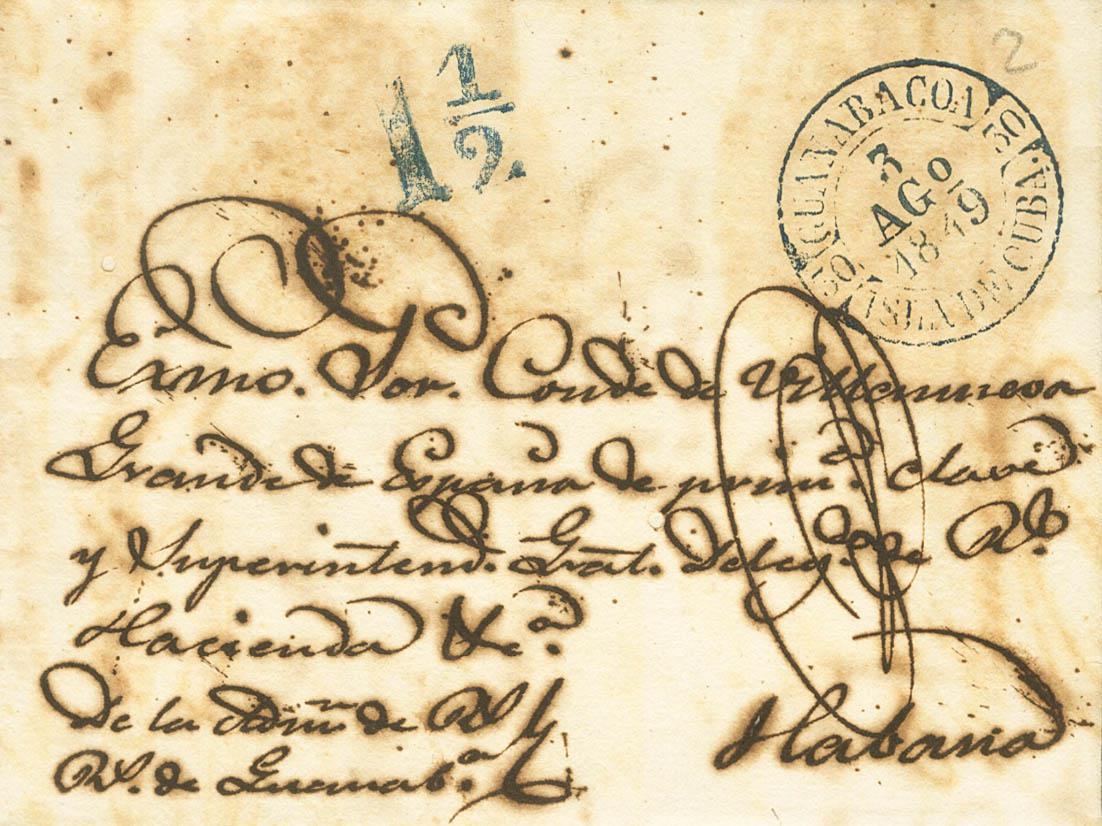 2
1 1/2
GUANABACOA
ISLA DE CUBA.
3
AGO
1849
Exmo. Sor. Conde de Villanueva
Grande de España de prim.ª clase
y Superintend. Gral. Deleg.º de Rl.
Hacienda &c.ª
De la Admⁿ de Rs
Rs. de Guanab.ª
Habana